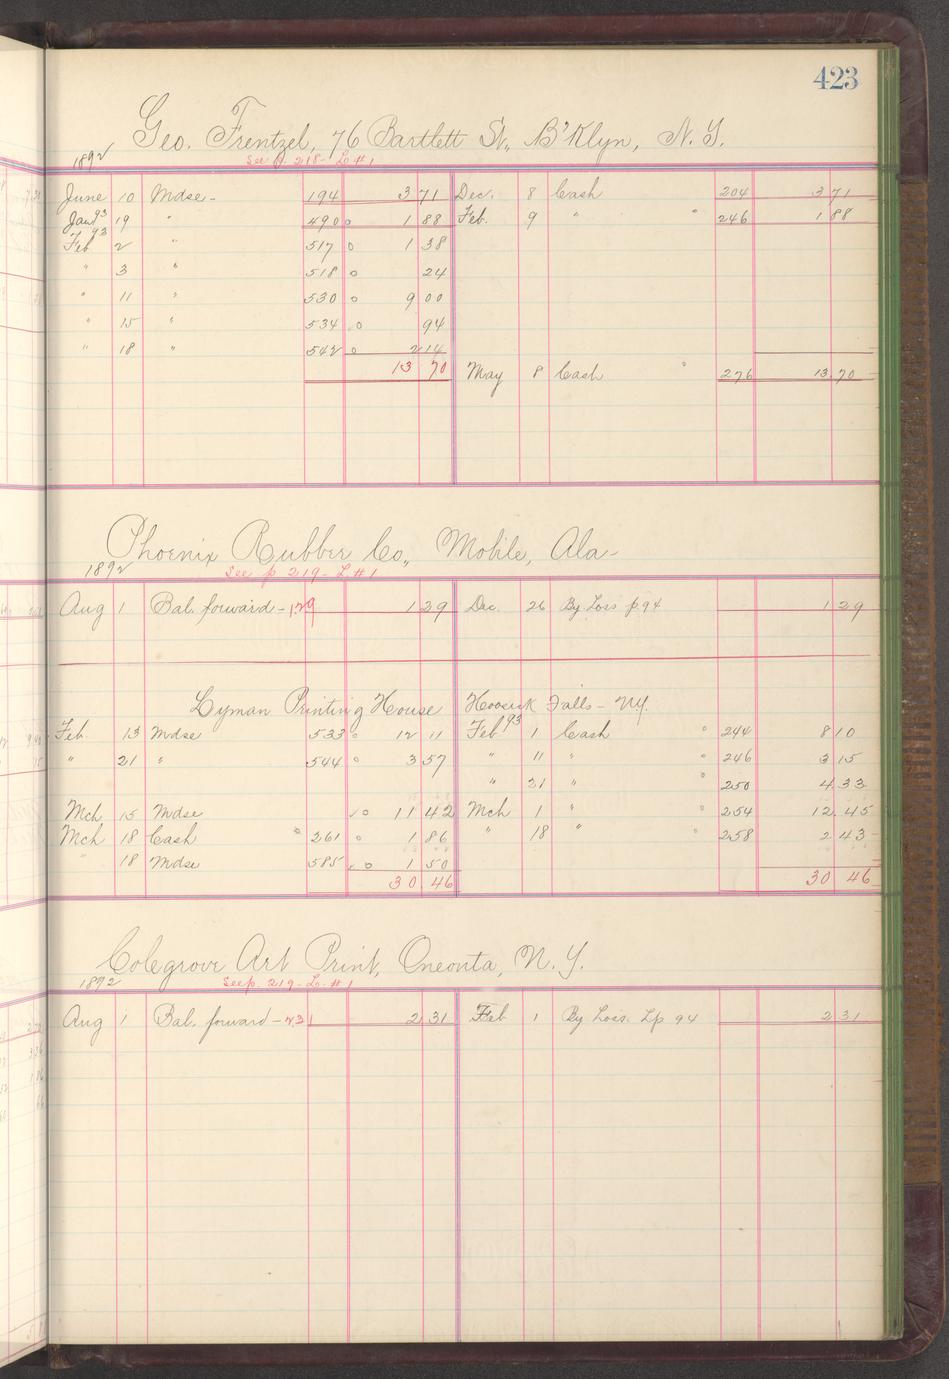 423
Geo. Frentzel, 76 Bartlett St., B'klyn, N.Y.
1892 See p. 218- L#1
June 10 Mdse- 194 3 71 Dec. 8 Cash 204 3 71
Jan 93 19 " 490 o 1 88 Feb. 9 " " 246 1 88
Feb 93 2 " 517 o 1 38
" 3 " 518 o 24
" 11 " 530 o 9 00
" 15 " 534 o 94
" 18 " 542 o 2 14
13 70 May 8 Cash " 276 13 70
Phoenix Rubber Co., Mobile, Ala-
1892 See p 219- L#1
Aug 1 Bal. forward- 129 1 29 Dec. 26 By Loss p. 94 1 29
Lyman Printing House Hoosick Falls- N.Y.
Feb. 13 Mdse 533 o 12 11 Feb 93 1 Cash " 244 8 10
" 21 " 544 o 3 57 " 11 " " 246 3 15
" 21 " " 250 4 33
Mch 15 Mdse o 11 42 Mch 1 " " 254 12.45
Mch 18 Cash " 261 o 1 86 " 18 " " 258 2 43
" 18 Mdse 585 o 1 50
30 46 30 46
Colegrove Art Print, Oneonta, N.Y.
1892 See p. 219- L.#1
Aug 1 Bal. forward- 231 2 31 Feb 1 By Loss Lp 94 2 31